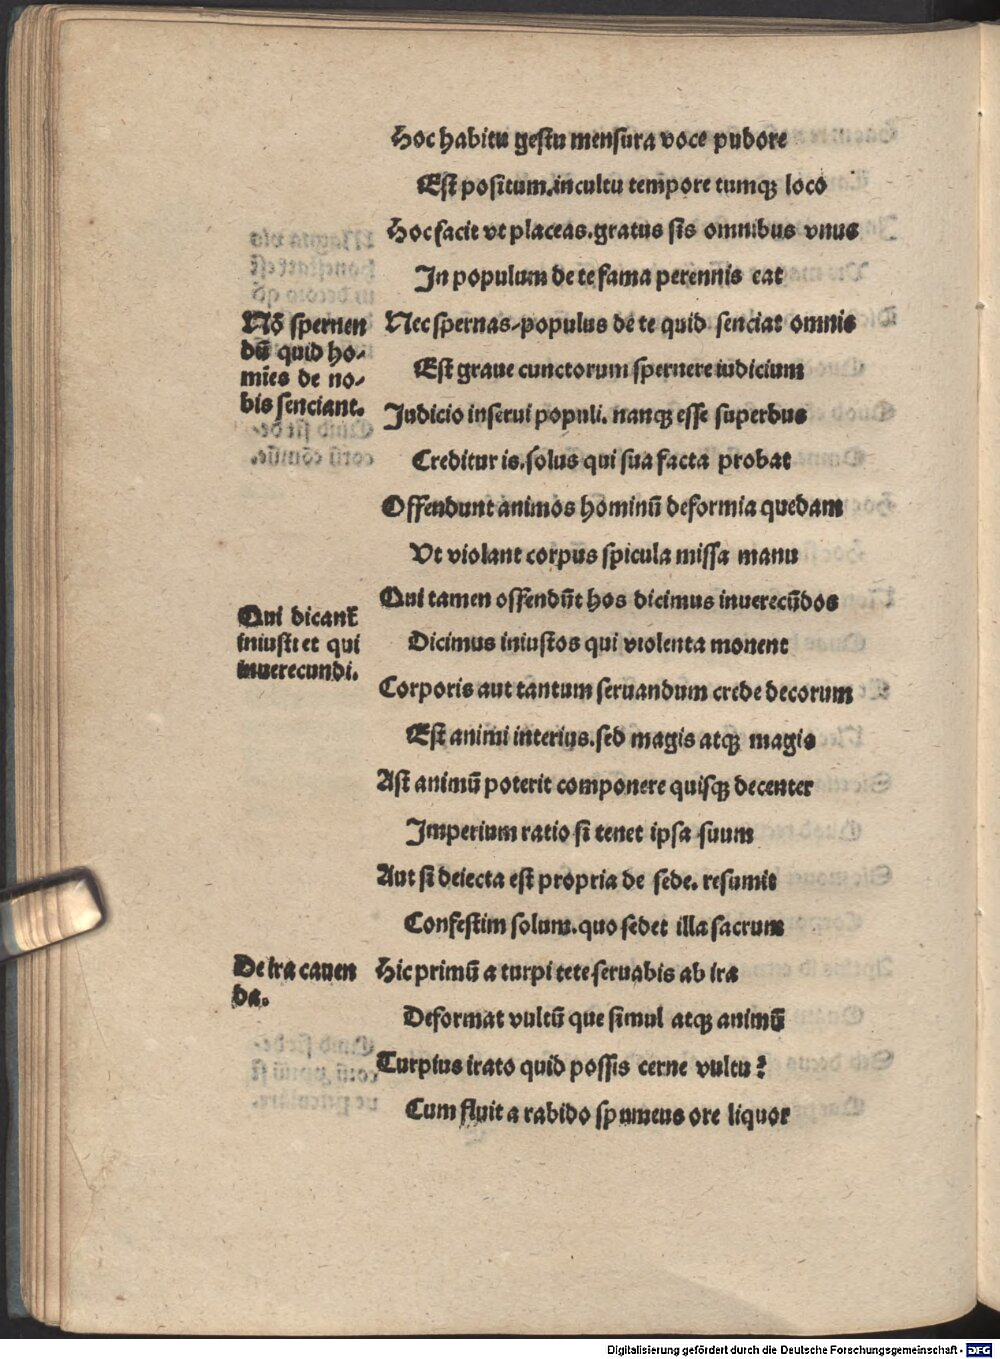 Hoc habitu gestu mensura voce pudore
Est positum.in cultu tempore tumqꝫ loco
Hoc facit vt placeas.gratus sis omnibus vnus
In populum de te fama perennis eat
Nõ spernen
dũ quid ho-
mies de no-
bis senciant.
Nec spernas-populus de te quid senciat omnis
Est graue cunctorum spernere iudicium
Judicio inserui populi. nanqꝫ esse superbus
Creditur is.solus qui sua facta probat
Offendunt animos hominũ deformia quedam
Vt violant corpus spicula missa manu
Qui dicant̃
iniusti et qui
inuerecundi.
Qui tamen offendũt hos dicimus inuerecũdos
Dicimus iniustos qui violenta monent
Corporis aut tantum seruandum crede decorum
Est animi interius.sed magis atqꝫ magis
Ast animũ poterit componere quisqꝫ decenter
Imperium ratio si tenet ipsa suum
Aut si deiecta est propria de sede. resumit
Confestim solum.quo sedet illa sacrum
De ira cauen
da.
Hic primũ a turpi tete seruabis ab ira
Deformat vultũ que simul atqꝫ animũ
Turpius irato quid possis cerne vultu ?
Cum fluit a rabido spumeus ore liquor
Digitalisierung gefördert durch die Deutsche Forschungsgemeinschaft - DFG